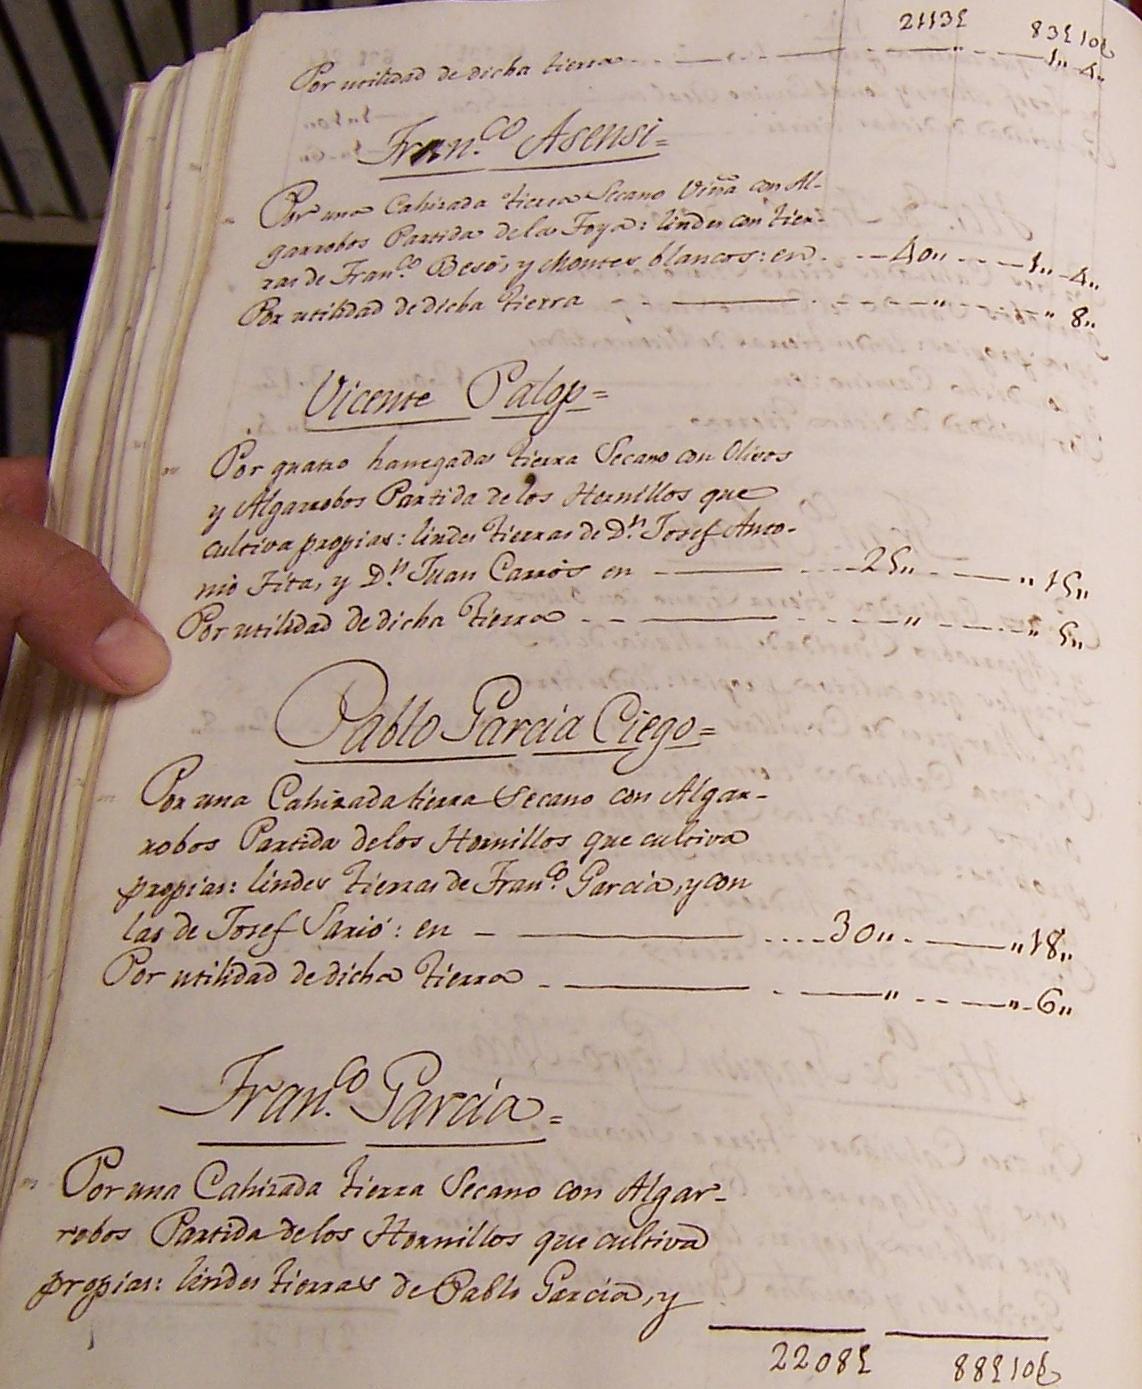 2113£ 83£10s
Por utilidad de dicha tierra - - - - 1,, 4,,
Fran.co Asensi=
Por una Cahizada tierra Secano Viña con Al-
garrobos Partida de la Foya: lindes con tier-
ras de Fran.co Besó, y Montes blancos: en - - 40,, - - - 1,, 4,,
Por utilidad de dicha tierra - - - - ,, - - - ,, 8,,
Vicente Palop=
Por quatro hanegadas tierra Secano con Olivos
y Algarrobos Partida de los Hornillos que
cultiva propias: lindes tierras de D.n Josef Anto-
nio Fita, y D.n Juan Carrós en - - - 25,, - - - ,, 15,,
Por utilidad de dicha tierra - - - - ,, - - - ,, 5,,
Pablo Garcia Ciego=
Por una Cahizada tierra Secano con Algar-
robos Partida de los Hornillos que cultiva
propias: lindes tierras de Fran.co Garcia, y con
las de Josef Sarió: en - - - 30,, - - - ,, 18,,
Por utilidad de dicha tierra - - - - ,, - - - ,, 6,,
Fran.co Garcia=
Por una Cahizada tierra Secano con Algar-
robos Partida de los Hornillos que cultiva
propias: lindes tierras de Pablo Garcia, y
2208£ 88£10s